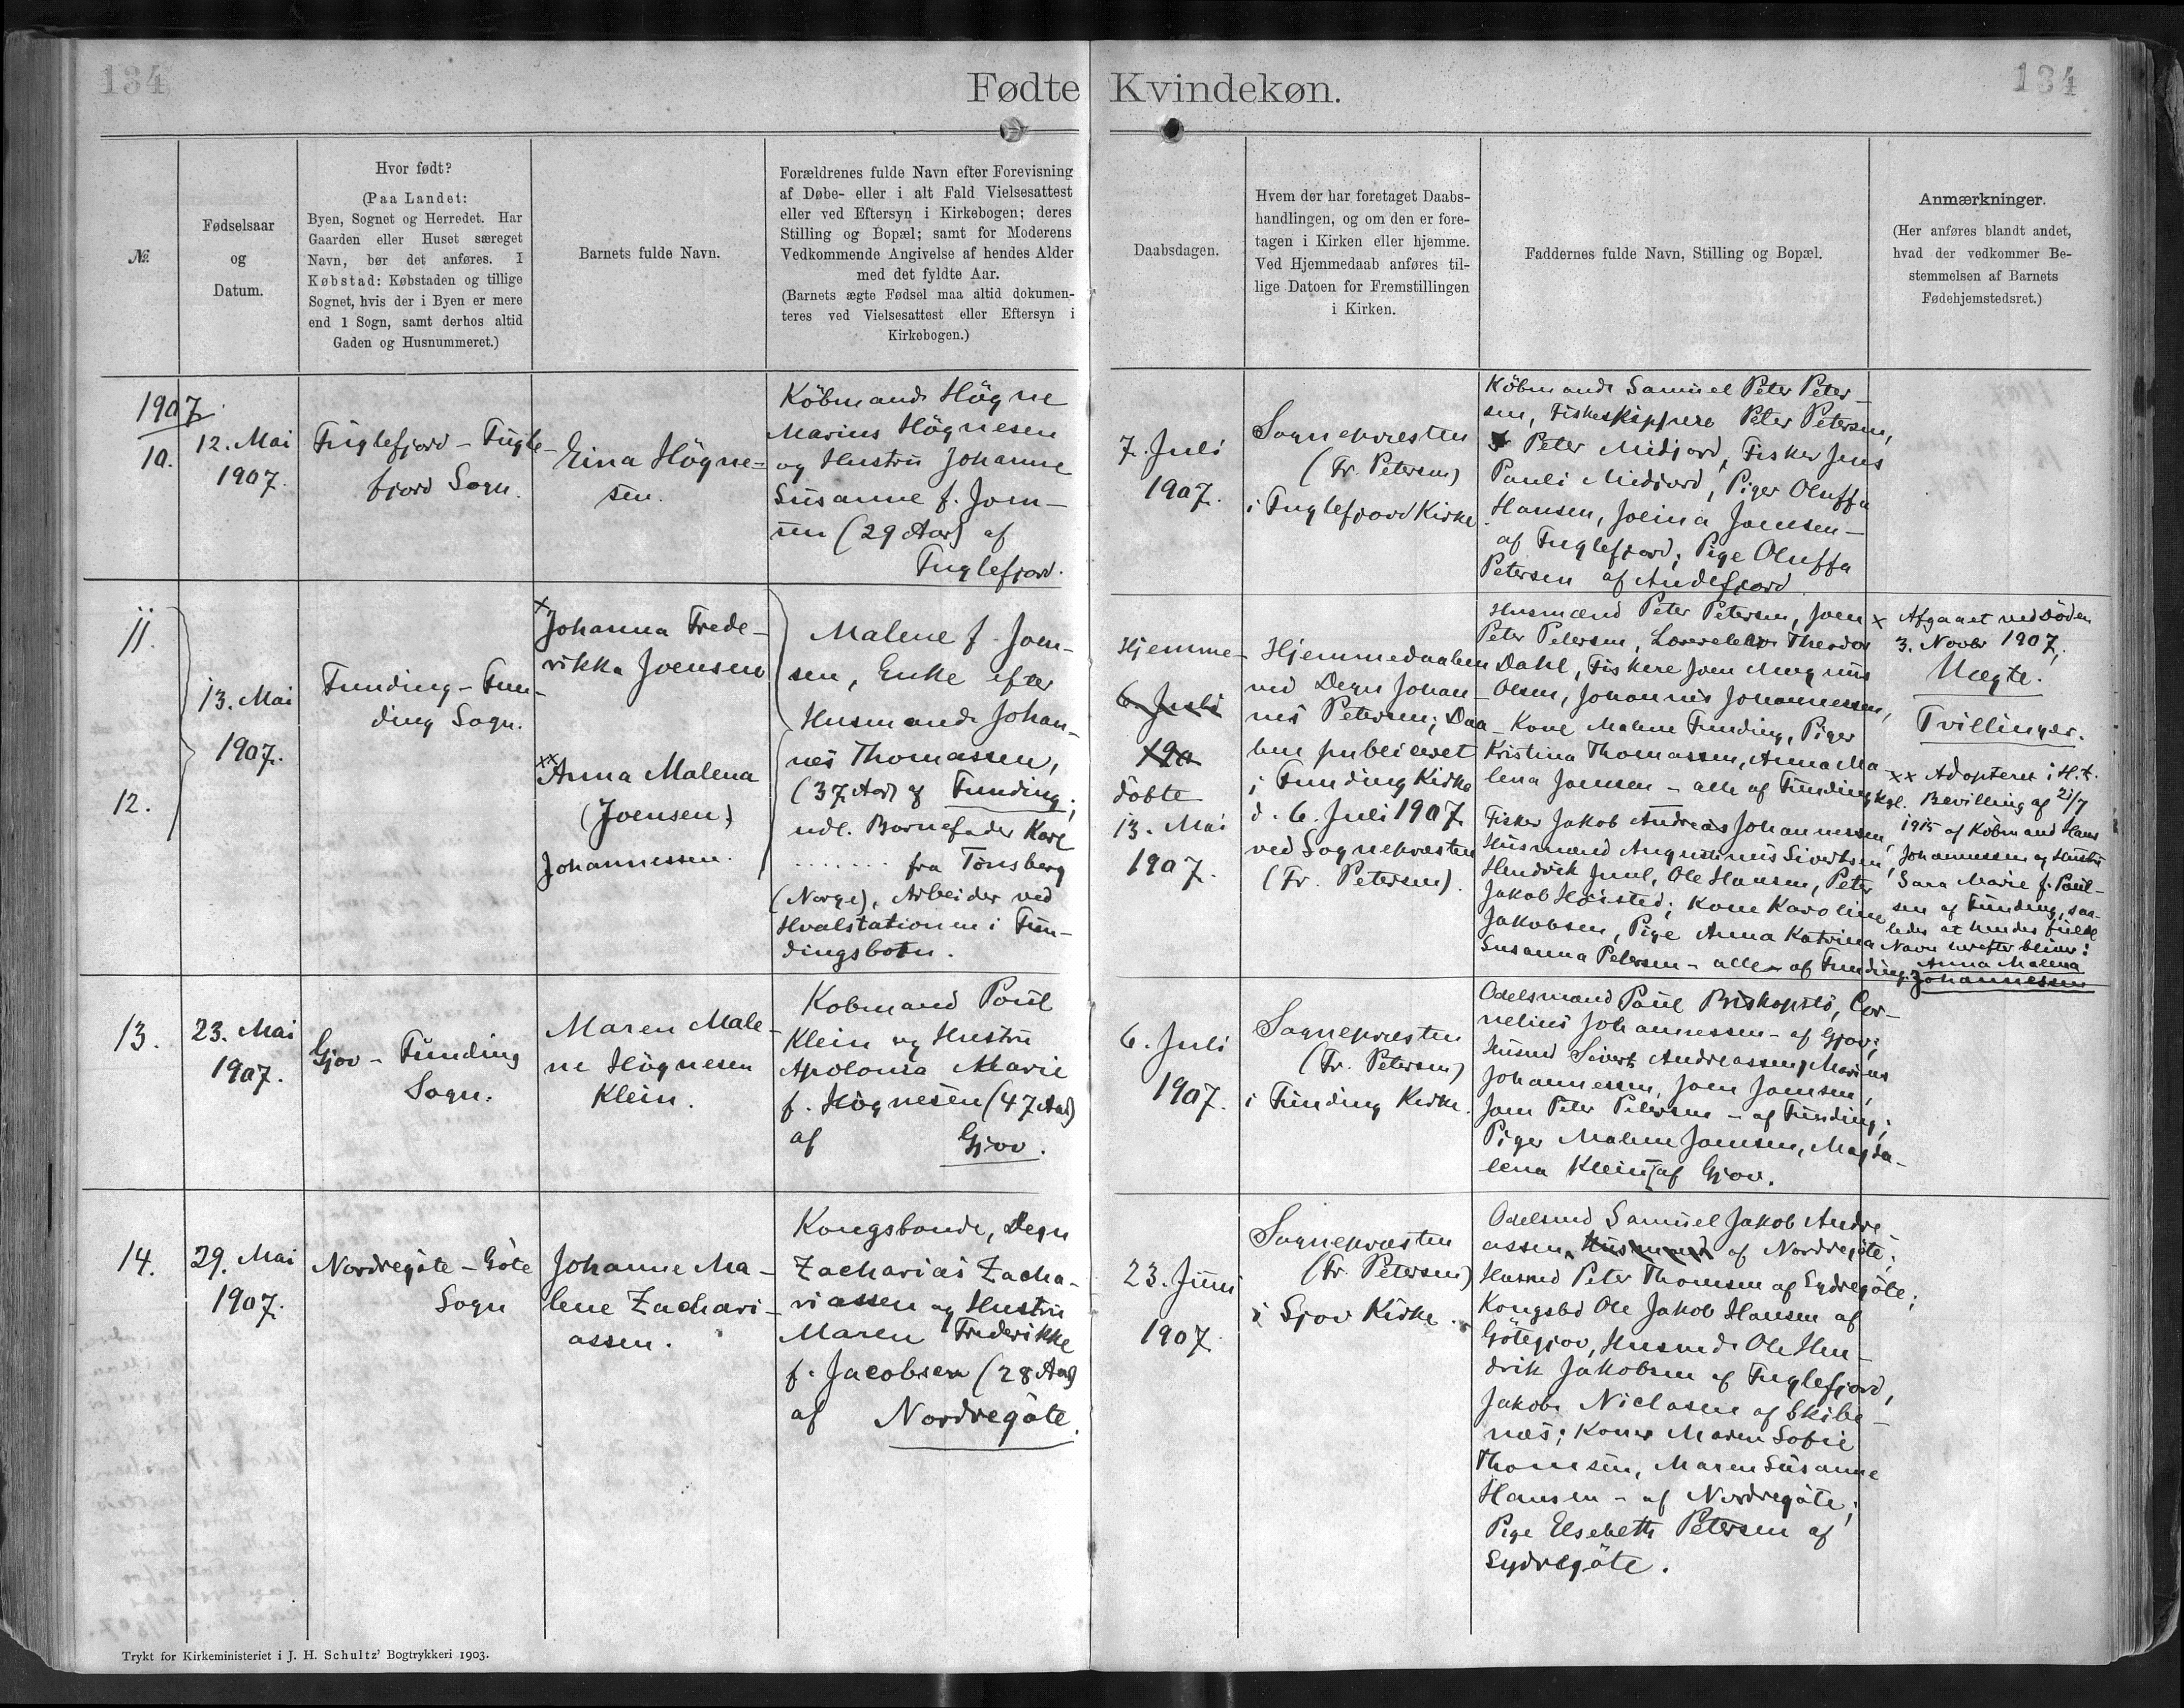 134
Fødte Kvindekøn.
134
№
Fødselsaar
og
Datum.
Hvor født?
(Paa Landet:
Byen, Sognet og Herredet. Har
Gaarden eller Huset særeget
Navn, bør det anføres. I
Købstad: Købstaden og tillige
Sognet, hvis der i Byen er mere
end 1 Sogn, samt derhos altid
Gaden og Husnummeret.)
Barnets fulde Navn.
Forældrenes fulde Navn efter Forevisning
af Døbe- eller i alt Fald Vielsesattest
eller ved Eftersyn i Kirkebogen; deres
Stilling og Bopæl; samt for Moderens
Vedkommende Angivelse af hendes Alder
med det fyldte Aar.
(Barnets ægte Fødsel maa altid dokumen-
teres ved Vielsesattest eller Eftersyn i
Kirkebogen.)
Daabsdagen.
Hvem der har foretaget Daabs-
handlingen, og om den er fore-
tagen i Kirken eller hjemme.
Ved Hjemmedaab anføres til-
lige Datoen for Fremstillingen
i Kirken.
Faddernes fulde Navn, Stilling og Bopæl.
Anmærkninger.
(Her anføres blandt andet,
hvad der vedkommer Be-
stemmelsen af Barnets
Fødehjemstedsret.)
1907
10.
12. Mai
1907.
Fuglefjord - Fugle-
fjord Sogn.
Eina Högne-
sen.
Köbmand Högne
Marius Högnesen
og Hustru Johanne
Susanne f. Joen-
sen (29 Aar) af
Fuglefjord.
7. Juli
1907.
Sognepræsten
(Fr. Petersen)
i Fuglefjord Kirke
Köbmand Samuel Peter Peter-
sen, Fiskeskippere Peter Petersen,
Peter Midjord, Fisker Jens
Pauli Midjord, Piger Oluffa
Hansen, Joeina Joensen -
af Fuglefjord; Pige Oluffa
Petersen af Andefjord
11.
12.
13. Mai
1907.
Funding - Fun-
ding Sogn.
x Johanna Frede-
rikka Joensen
xx Anna Malena
(Joensen)
Johannessen.
Malene f. Joen-
sen, Enke efter
Husmand Johan-
nes Thomassen,
(37 Aar) af Funding;
udl. Barnefader Karl
....... fra Tönsberg
(Norge), Arbeider ved
Hvalstationen i Fun-
dingsbotn.
Hjemme-
6. Juli
190
döbte
13. Mai
1907.
Hjemmedaaben
ved Degn Johan-
nes Petersen; Daa-
ben publiceret
i Funding Kirke
d. 6. Juli 1907
ved Sognepræsten
(Fr. Petersen).
Husmænd Peter Petersen, Joen
Peter Petersen, Lærerelev Theodor
Dahl, Fiskere Joen Magnus
Olsen, Johannis Johannessen,
Kone Malene Funding, Piger
Kristina Thomassen, Anna Ma-
lena Joensen - alle af Funding
Fisker Jakob Andreas Johannessen,
Husmænd Augustinus Sivertsen,
Hendrik Juul, Ole Hansen, Peter
Jakob Höisted; Kone Karoline
Jakobsen, Pige Anna Katrina
Susanna Petersen - alle af Funding.
x Afgaaet ved Döden
3. Novbr 1907,
Uægte.
Tvillinger.
xx Adopteret i H.t.
kgl. Bevilling af 21/7
1915 af Köbmand Hans
Johannessen og Hustru
Sara Marie f. Poul-
sen af Funding, saa-
ledes at hendes fulde
Navn herefter bliver:
Anna Malena
Johannessen
13.
23. Mai
1907.
Gjov - Funding
Sogn.
Maren Male-
ne Högnesen
Klein.
Købmand Poul
Klein og Hustru
Apolonia Marie
f. Högnesen (47 Aar)
af Gjov.
6. Juli
1907.
Sognepræsten
(Fr. Petersen)
i Funding Kirke.
Odelsmænd Poul Biskopstö, Cor-
nelius Johannessen - af Gjov;
Husmd Sivert Andreassen, Marius
Johannessen, Joen Joensen,
Joen Peter Petersen - af Funding;
Piger Malene Joensen, Magda-
lena Klein, af Gjov.
14.
29. Mai
1907.
Nordregöte - Göte
Sogn
Johanne Ma-
lene Zachari-
assen.
Kongsbonde, Degn
Zacharias Zacha-
riassen og Hustru
Maren Frederikke
f. Jacobsen (28 Aar)
af Nordregöte.
23. Juni
1907.
Sognepræsten
(Fr. Petersen)
i Gjov Kirke.
Odelsmd Samuel Jakob Andre-
assen, Husmand af Nordregöte;
Husmd Peter Thomsen af Sydregöte;
Kongsbd Ole Jakob Hansen af
Götegjov, Husmd Ole Hen-
drik Jakobsen af Fuglefjord,
Jakob Niclasen af Skibe-
næs; Koner Maren Sofie
Thomsen, Maren Susanne
Hansen - af Nordregöte;
Pige Elsebeth Petersen af
Sydregöte.
Trykt for Kirkeministeriet i J. H. Schultz' Bogtrykkeri 1903.